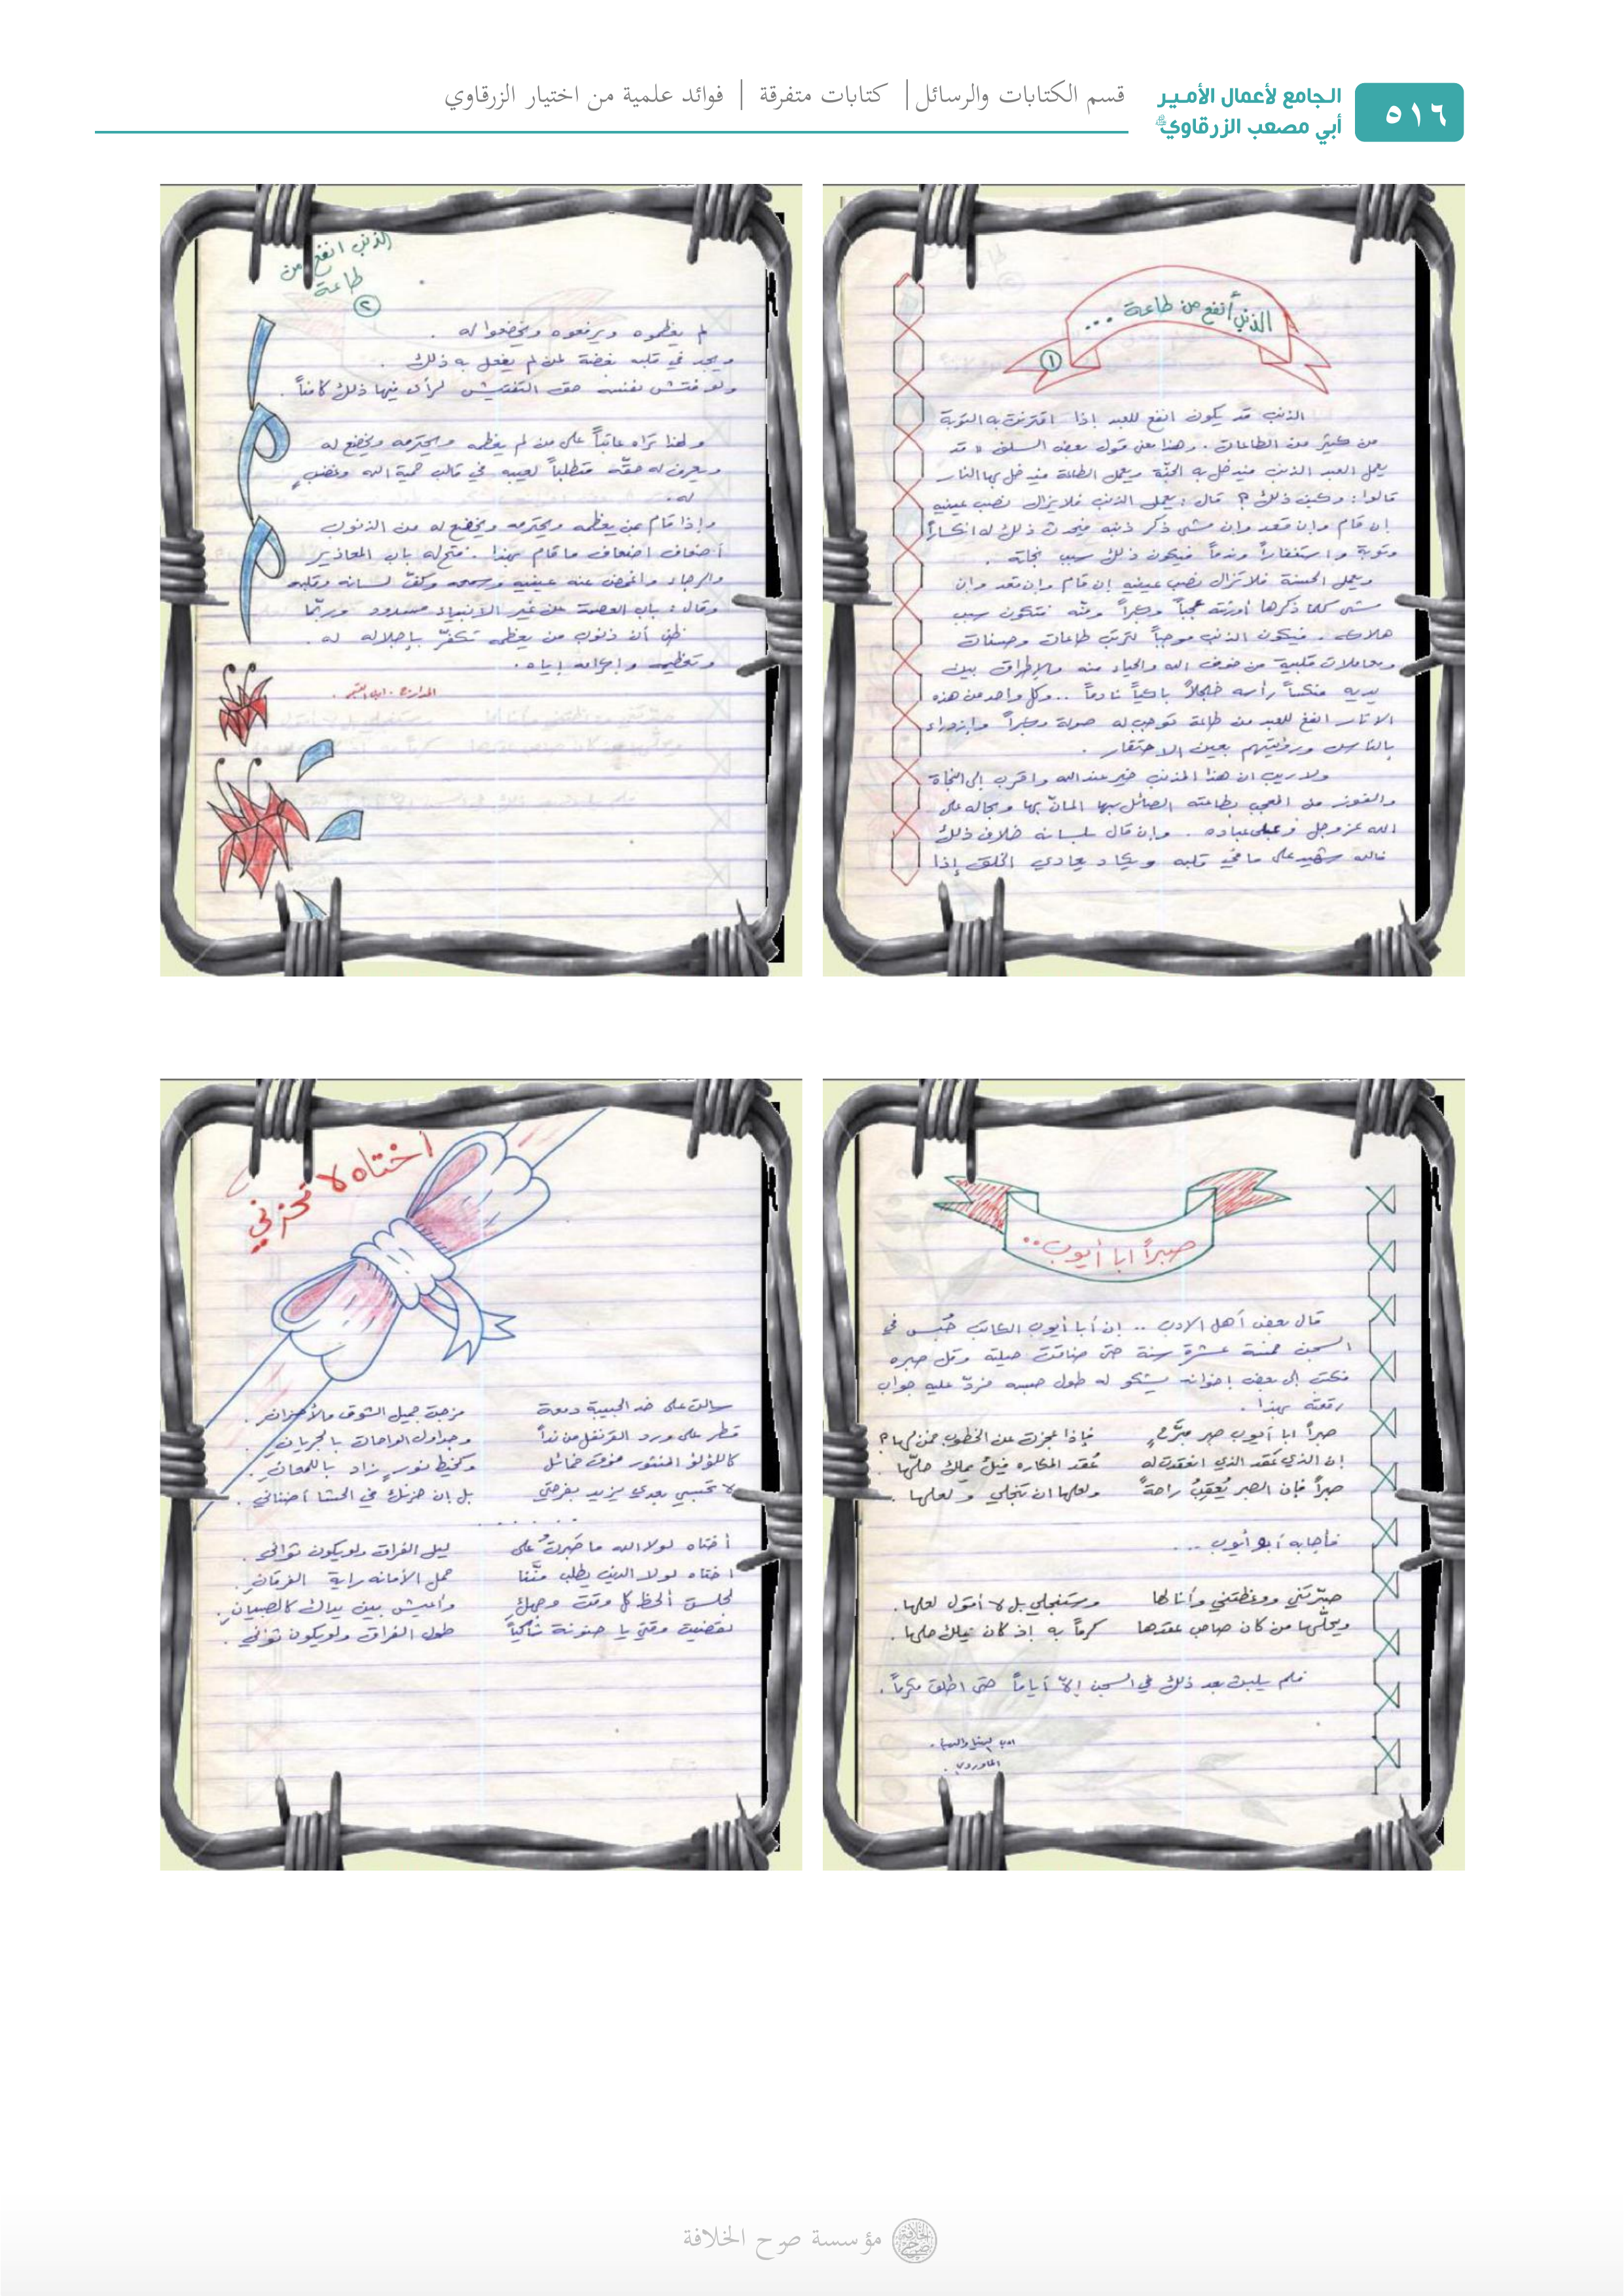 ٥١٦
الجامع لأعمال الأمير
أبي مصعب الزرقاوي
قسم الكتابات والرسائل | كتابات متفرقة | فوائد علمية من اختيار الزرقاوي
الذنب أنفع من طاعة ...
١
الذنب قد يكون انفع للعبد إذا اقترنت به التوبة
من كثير من الطاعات . وهذا معنى قول بعض السلف « قد
يعمل العبد الذنب فيدخل به الجنّة ويعمل الطاعة فيدخل بها النار
قالوا : وكيف ذلك ؟ قال : يعمل الذنب فلا يزال نصب عينيه
إن قام وإن قعد وإن مشى ذكر ذنبه فيحدث ذلك له انكساراً
وتوبة واستغفاراً وندماً فيكون ذلك سبب نجاته .
ويعمل الحسنة فلا تزال نصب عينيه إن قام وإن قعد وإن
مشى كلما ذكرها أورثته عجباً وكبراً ومنّة فتكون سبب
هلاكه . فيكون الذنب موجباً لترتب طاعات وحسنات
ومعاملات قلبية من خوف الله والحياء منه والإطراق بين
يديه منكساً رأسه خجلاً باكياً نادماً .. وكل واحد من هذه
الاثار انفع للعبد من طاعة توجب له صولة وكبراً وازدراء
بالناس ورؤيتهم بعين الاحتقار .
ولا ريب ان هذا المذنب خير عند الله واقرب إلى النجاة
والفوز من المعجب بطاعته الصائل بها المانّ بها وبحاله على
الله عز وجل وعلى عباده . وإن قال بلسانه خلاف ذلك
فالله شهيد على ما في قلبه ويكاد يعادي الخلق إذا
الذنب انفع من
طاعة
٢
لم يعظموه ويرفعوه ويخضعوا له .
ويجد في قلبه بغضة لمن لم يفعل به ذلك .
ولو فتش نفسه حق التفتيش لرأى فيها ذلك كامناً .
ولهذا تراه عاتباً على من لم يعظمه ويحترمه ويخضع له
ويعرف له حقّه متطلباً لعيبه في قالب حمية الله وغضبٍ
له .
وإذا قام بمن يعظمه ويحترمه ويخضع له من الذنوب
أضعاف اضعاف ما قام بهذا . فتح له باب المعاذير
والرجاء واغمض عنه عينيه وسمعه وكفّ لسانه وقلبه
وقال : باب العصمة عن غير الانبياء مسدود وربّما
ظن أن ذنوب من يعظمه تكفّر بإجلاله له .
وتعظيمه وإكرامه إياه .
المدارج . ابن القيم .
صبراً ابا أيوب ..
قال بعض أهل الادب .. إن أبا أيوب الكاتب حُبس في
السجن خمسة عشرة سنة حتى ضاقت حيلته وقل صبره
فكتب إلى بعض إخوانه يشكو له طول حبسه فردّ عليه جواب
رقعته بهذا .
صبراً ابا أيوب صبر مبرّحٍ فإذا عجزت عن الخطوب فمن لها ؟
إن الذي عَقد الذي انعقدت له عُقد المكاره فيك يملك حلّها
صبراً فإن الصبر يُعقِبُ راحةً ولعلها ان تنجلي ولعلها .
فأجابه أبو أيوب ...
صبّرتني ووعظتني وأنا لها وستنجلي بل لا أقول لعلها .
ويحلّها من كان صاحب عقدها كرماً به إذ كان يملك حلها .
فلم يلبث بعد ذلك في السجن إلاّ أياماً حتى اطلق مكرماً .
ادب الدنيا والدين .
الماوردي .
اختاه لا تحزني
سالت على خد الحبيبة دمعة مزجت جميل الشوق والأحزان .
قطر على ورد القرنفل من نداً وجداول الواحات بالجريان .
كاللؤلؤ المنثور فوق خمائل وكخيط نورٍ زاد باللمعان .
لا تحسبي بعدي يزيد بفرحتي بل إن حزنك في الحشا أضناني .
. . . . . .
أختاه لولا الله ما صَبرتُ على ليل الفراق ولو يكون ثواني .
اختاه لولا الدين يطلب منّنا حمل الأمانه راية الفرقان .
لجلست ألحظ كل وقت وجهكِ وأعيش بين يداك كالصبيان .
لقضيت وقتي يا حنونة شاكياً طول الفراق ولو يكون ثواني .
مؤسسة صرح الخلافة